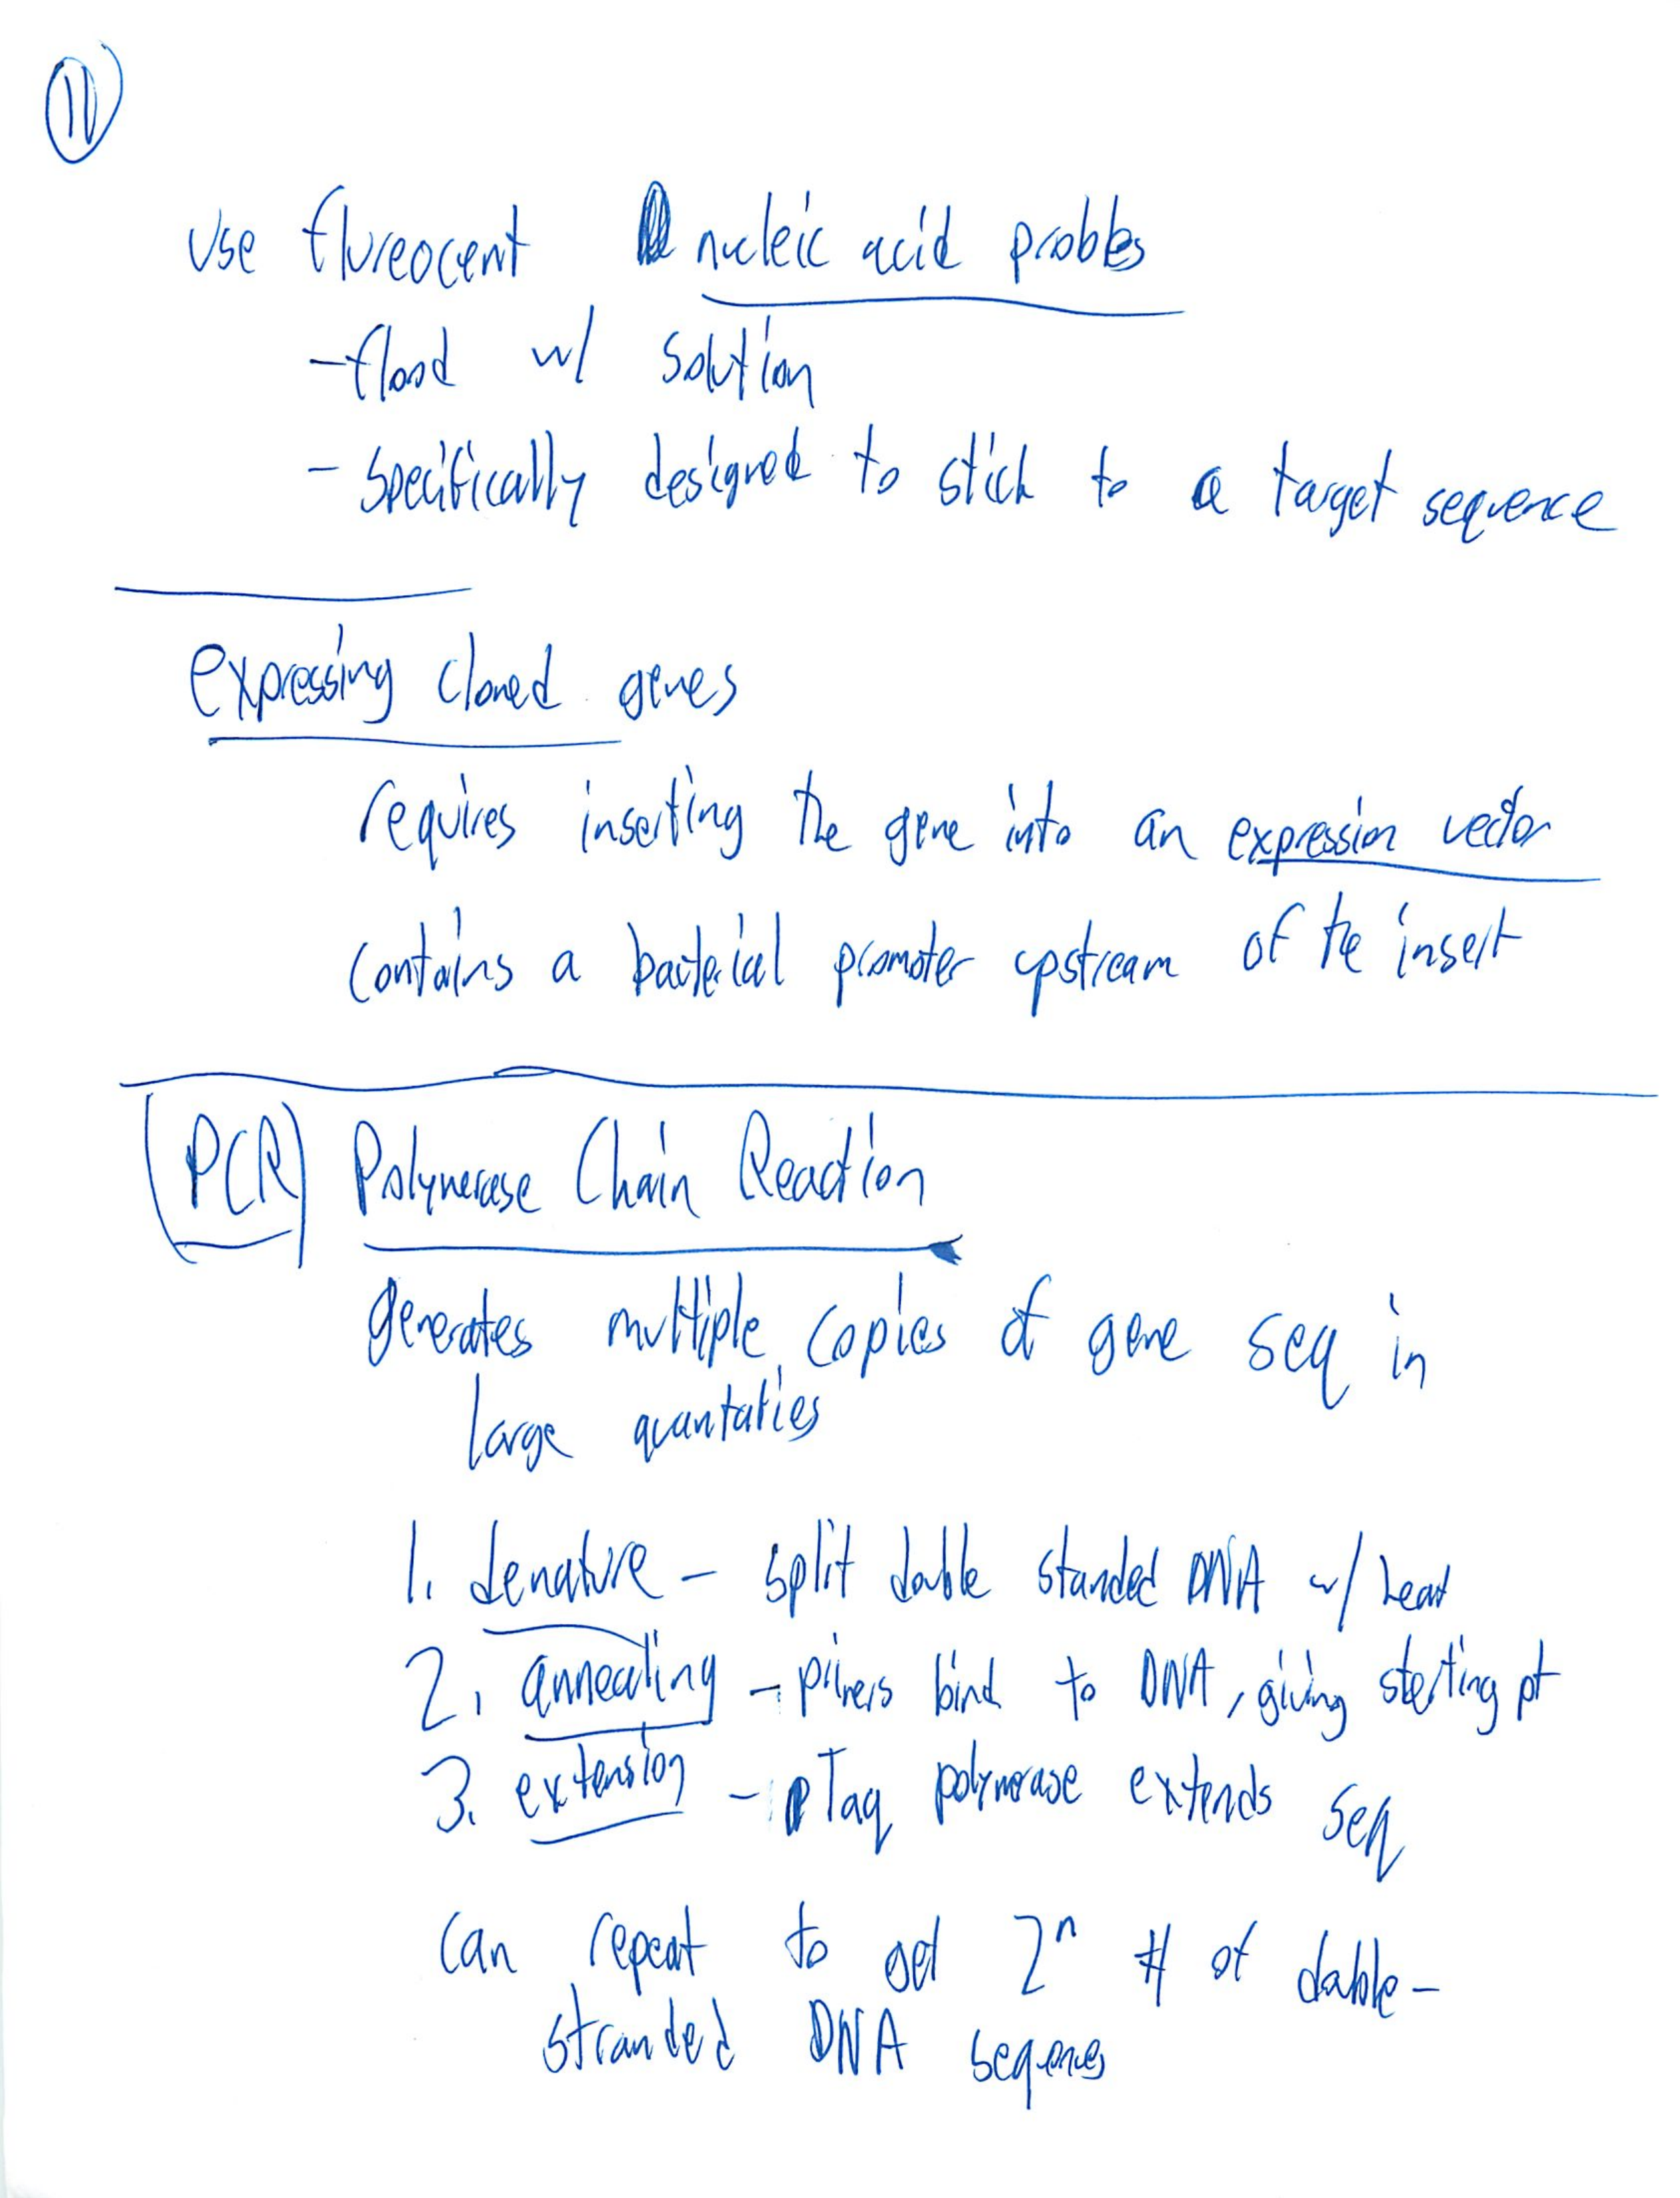 11
Use flureocent nucleic acid probbes
- flood w/ solution
- specifically designed to stick to a target sequence
Expressing cloned genes
requires inserting the gene into an expression vector
contains a bacterial promoter upstream of the insert
PCR Polymerase Chain Reaction
generates multiple copies of gene seq in
large quantaties
1. denature - split double standed DNA w/ heat
2. annealing - primers bind to DNA, giving starting pt
3. extension - Taq polymerase extends seq
can repeat to get 2ⁿ # of double-
stranded DNA sequences